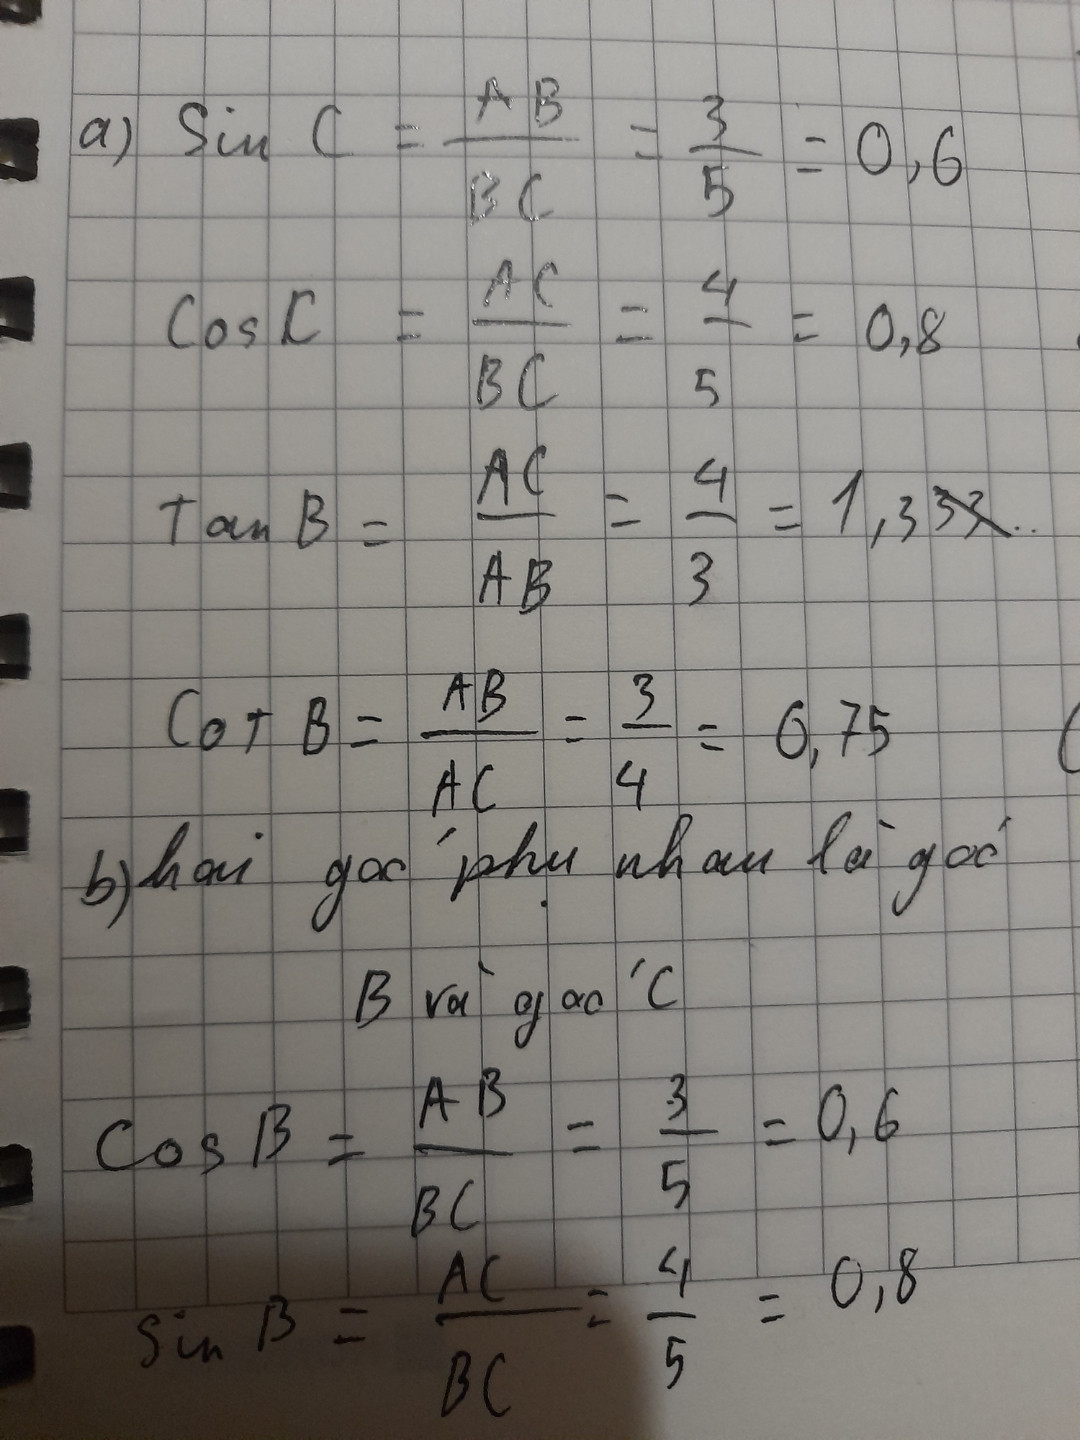 a) Sin C = AB/BC = 3/5 = 0,6
Cos C = AC/BC = 4/5 = 0,8
Tan B = AC/AB = 4/3 = 1,3
Cot B = AB/AC = 3/4 = 0,75
b) hai góc phụ nhau là góc
B và góc C
Cos B = AB/BC = 3/5 = 0,6
Sin B = AC/BC = 4/5 = 0,8